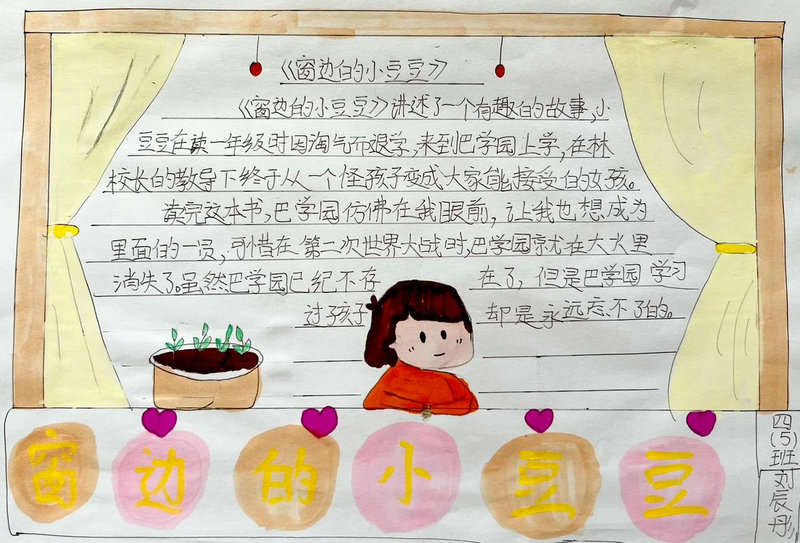 《窗边的小豆豆》
《窗边的小豆豆》讲述了一个有趣的故事,小
豆豆在读一年级时因淘气而退学,来到巴学园上学,在林
校长的教导下终于从一个怪孩子变成大家能接受的女孩。
读完这本书,巴学园仿佛在我眼前,让我也想成为
里面的一员,可惜在第二次世界大战时,巴学园就在大火里
消失了。虽然巴学园已纪不存在了,但是巴学园学习
过孩子却是永远忘不了的。
窗边的小豆豆
四(5)班
刘辰彤